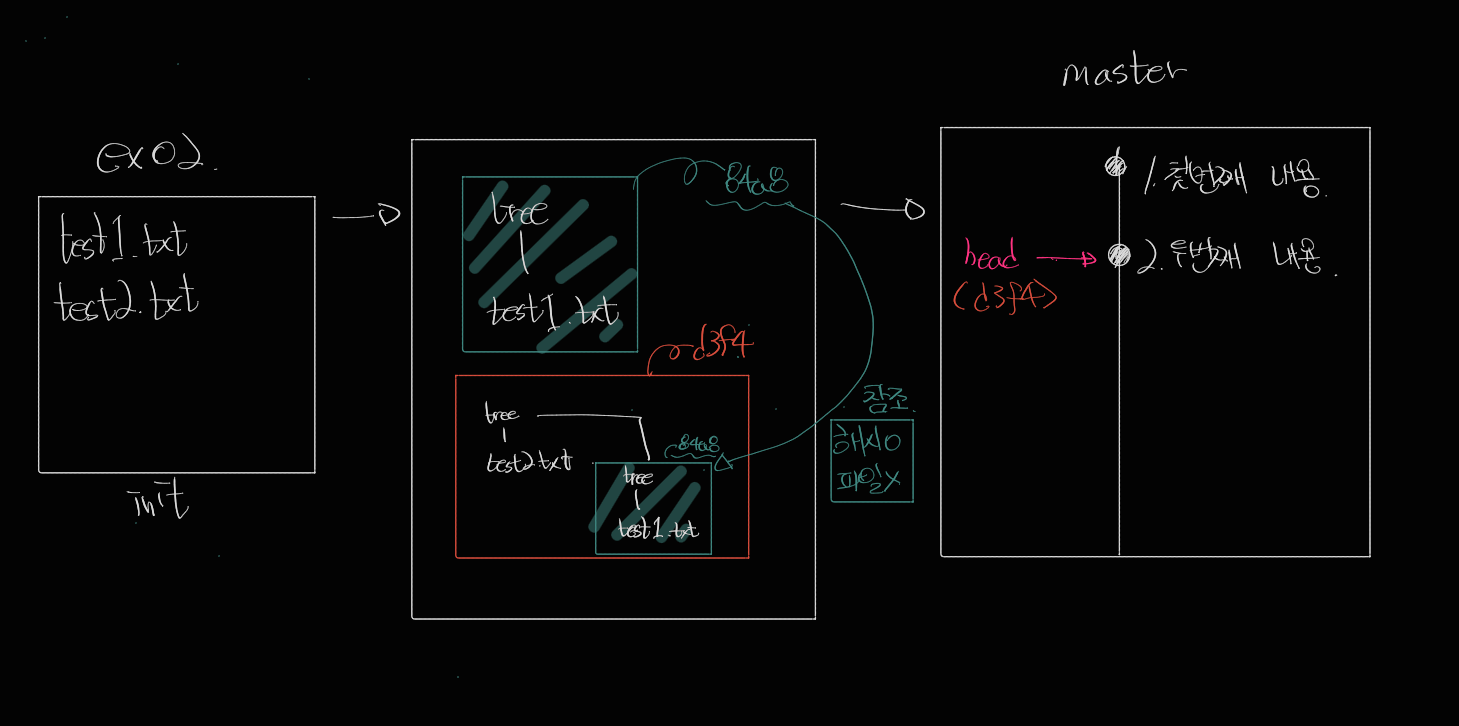 ex02.
test1.txt
test2.txt
init
84a8
tree
test1.txt
d3f4
tree
test2.txt
84a8
tree
test1.txt
참조.
해시O
파일X
master
1. 첫번째 내용.
head
(d3f4)
2. 두번째 내용.